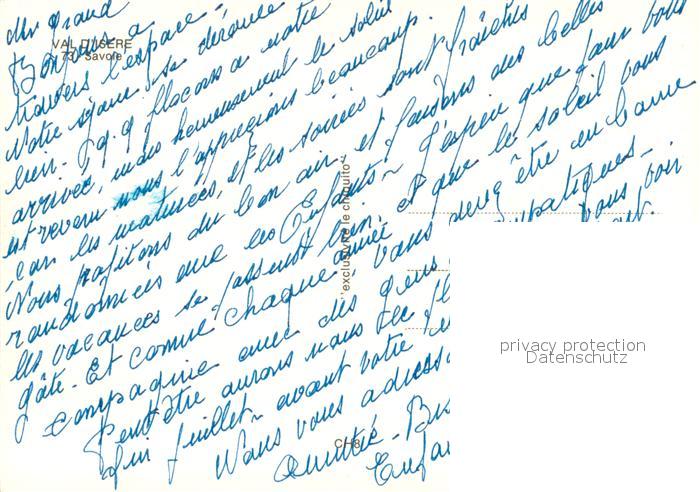 VAL D'ISERE
73 - Savoie
un grand
Bonjour à
travers l'espace -
Notre séjour se déroule
bien. Il y a
arrivée, mais heureusement le soleil
est revenu nous l'apprécions beaucoup.
car les matinées, et les soirées sont fraîches
Nous profitons du bon air et faisons des belles
randonnées avec les Enfants - J'espère que pour vous
les vacances se passent bien. et que le soleil vous
gâte. Et comme chaque année, vous devez être en bonne
compagnie avec des gens sympatiques -
Peut être aurons nous le vous voir
fin juillet - avant votre
Nous vous adress
Amitié - Bis
Enfa
"exclusivité le chiquito"
CH8
privacy protection
Datenschutz